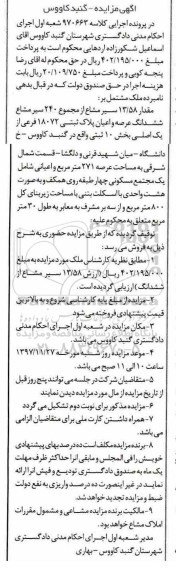 آگهی مزایده - گنبد کاووس
در پرونده اجرایی کلاسه ۹۷۰۶۶۳ شعبه اول اجرای
احکام مدنی دادگستری شهرستان گنبد کاووس آقای
اسماعیل شکورزاده اردهایی محکوم است به پرداخت
مبلغ ۴۰۲/۱۹۵/۰۰۰ ریال در حق محکوم له آقای رضا
پنجه کوبی و پرداخت مبلغ ۲۰/۱۰۹/۷۵۰ ریال بابت
هزینه اجرا در حق صندوق دولت که در قبال بدهی
نامبرده ملک مشتمل بر:
مقدار ۱۳/۵۸ سیر مشاع از مجموع ۲۴۰ سیر مشاع
ششدانگ عرصه و اعیان پلاک ثبتی ۱۸۰۷۲ فرعی از
یک اصلی بخش ۱۰ ثبتی واقع در گنبد کاووس - خ
دانشگاه - میان شهید قرنی و دلگشا - قسمت شمال
شرقی به مساحت عرصه ۳۷۱ متر مربع و اعیانی شامل
یک مجتمع مسکونی چهار طبقه روی همکف و به صورت
هشت واحدی با اسکلت بتنی با مساحت زیربنای کل
۸۰۰ متر مربع و از سه بر مشرف به معابر به طول ۳۰ متر
مربع متعلق به محکوم علیه:
توقیف گردیده که از طریق مزایده حضوری به شرح
ذیل به فروش می رسد:
۱- مطابق نظریه کارشناس ملک مورد مزایده به مبلغ
۴۰۲/۱۹۵/۰۰۰ ریال (ارزش ۱۳/۵۸ سیر مشاع از
ششدانگ) ارزیابی گردیده است.
۲- مزایده از مبلغ پایه کارشناسی شروع و به بالاترین
قیمت پیشنهادی فروخته می شود
۳- مکان مزایده در شعبه اول اجرای احکام مدنی
دادگستری گنبد کاووس می باشد.
۴- موعد مزایده روز شنبه مورخه ۱۳۹۷/۱۱/۲۷
ساعت ۱۰ الی ۱۱ صبح می باشد.
۵- متقاضیان شرکت در جلسه می توانند پنج روز قبل
از تاریخ مزایده از مال مورد مزایده دیدن نمایند
۶- مزایده مذکور برای نوبت دوم تشکیل می گردد
۷- همراه داشتن کارت ملی برای متقاضیان الزامی
می باشد.
۸- برنده مزایده مکلف است ده درصد بهای پیشنهادی
خویش را فی المجلس و مابقی آنرا حداکثر ظرف مهلت
یک ماه به صندوق دادگستری تودیع و فیش آنرا ارائه
نمایند در غیر اینصورت ده درصد واریزی به نفع دولت
ضبط و مزایده تجدید خواهد شد.
۹- مالکیت برنده مزایده مشاعی و مشمول مقررات
املاک مشاع خواهد بود.
مدیر شعبه اول اجرای احکام مدنی دادگستری
شهرستان گنبد کاووس - بهاری